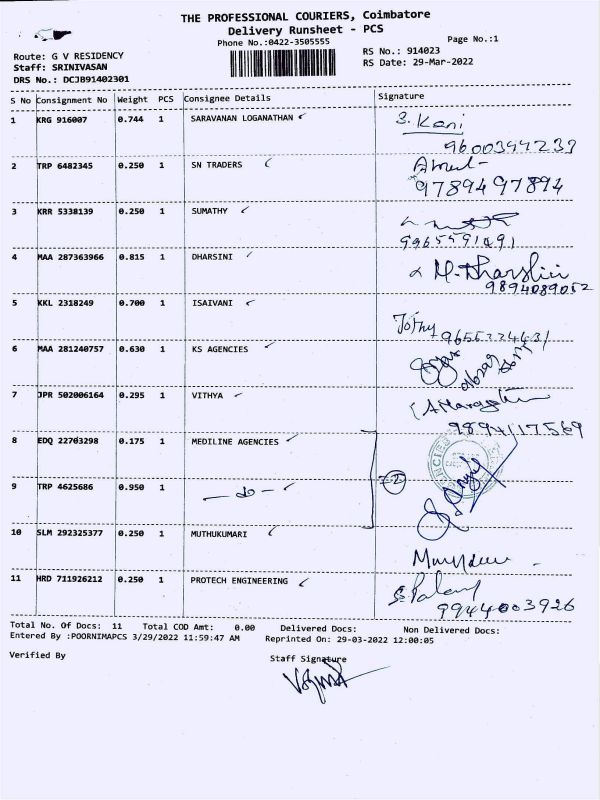 THE PROFESSIONAL COURIERS, Coimbatore
Delivery Runsheet - PCS
Phone No.:0422-3505555
Page No.:1
Route: G V RESIDENCY
RS No.: 914023
Staff: SRINIVASAN
RS Date: 29-Mar-2022
DRS No.: DCJB91402301
S No Consignment No Weight PCS Consignee Details Signature
1 KRG 916007 0.744 1 SARAVANAN LOGANATHAN S. Kani
2 TRP 6482345 0.250 1 SN TRADERS
9789497894
3 KRR 5338139 0.250 1 SUMATHY
9965591491
4 MAA 287363966 0.815 1 DHARSINI M. Dharslini
9894089052
5 KKL 2318249 0.700 1 ISAIVANI Jothy
6 MAA 281240757 0.630 1 KS AGENCIES
7 JPR 502006164 0.295 1 VITHYA
9894117569
8 EDQ 22703298 0.175 1 MEDILINE AGENCIES
9 TRP 4625686 0.950 1 - do - 2
10 SLM 292325377 0.250 1 MUTHUKUMARI
11 HRD 711926212 0.250 1 PROTECH ENGINEERING
9944003926
Total No. Of Docs: 11 Total COD Amt: 0.00 Delivered Docs: Non Delivered Docs:
Entered By :POORNIMAPCS 3/29/2022 11:59:47 AM Reprinted On: 29-03-2022 12:00:05
Verified By
Staff Signature